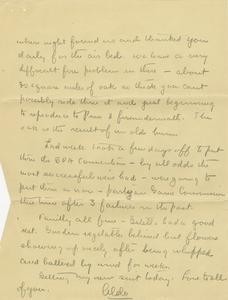 where night found us and thanked you
daily for the air beds. We have a very
difficult fire problem in there - about
30 square miles of oak so thick you can't
possibly ride thru it and just beginning
to reproduce to Pine & fir underneath. The
oak is the result of an old burn.
Last week I took a few days off to put
thru the GPA Convention - by all odds the
most successful we've had - we're going to
put thru a new - partisan Game Commission
this time after 3 failures in the past.
Family all fine - Estella had a good
rest. Garden vegetables behind but flowers
showing up nicely after being whipped
and battered by wind for weeks.
Getting my new sent today. Love to all
of you.
Aldo